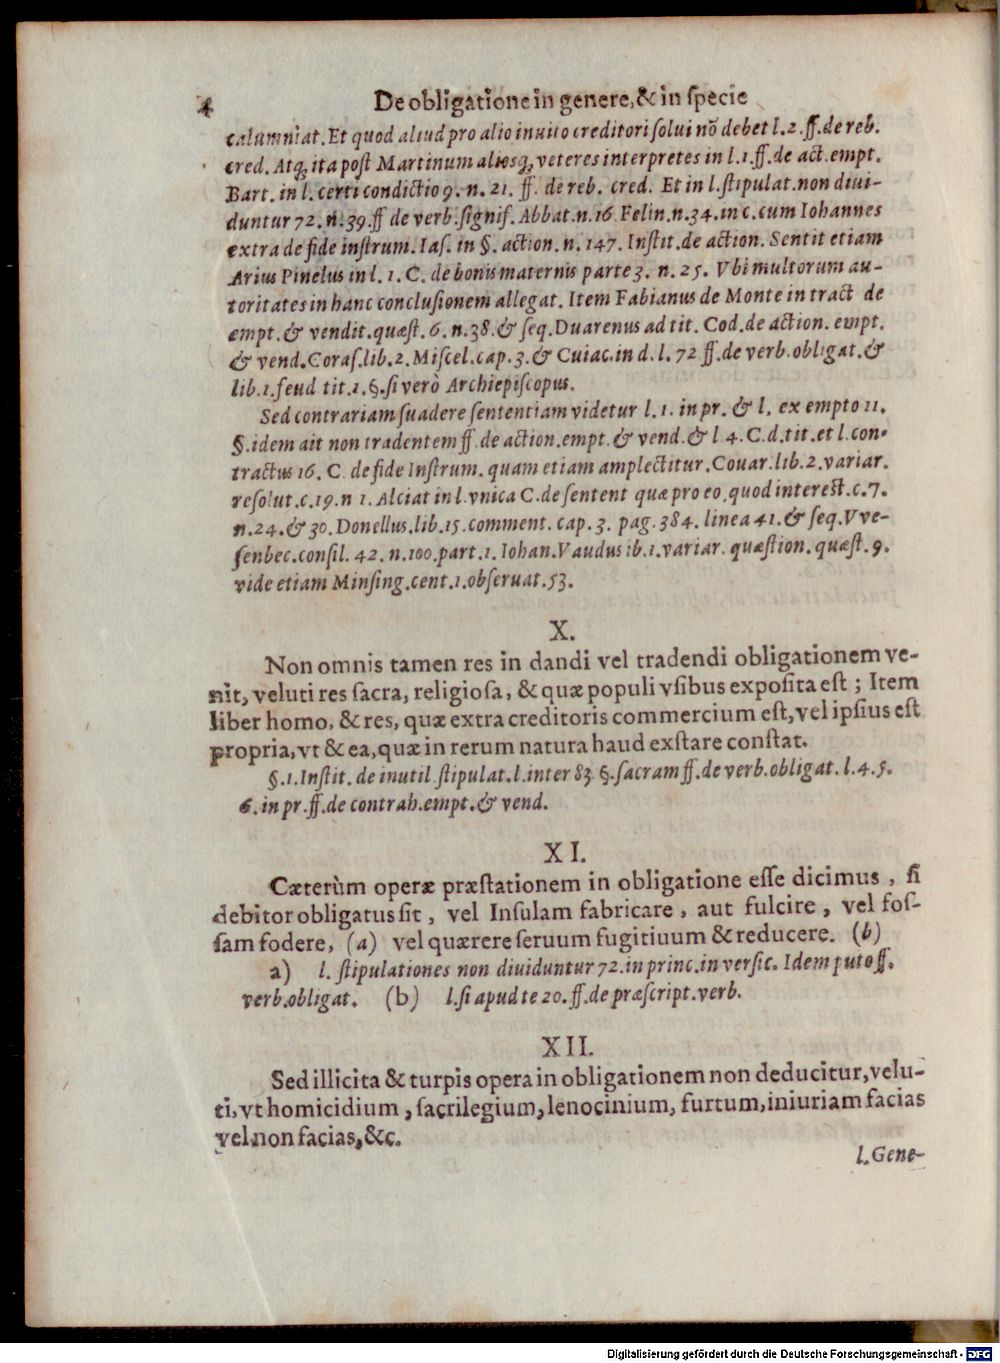 4 De obligatione in genere, & in specie
calumniat. Et quod aliud pro alio inuito creditori solui nõ debet l. 2. ff. de reb.
cred. Atq; ita post Martinum aliosq; veteres interpretes in l. 1. ff. de act. empt.
Bart. in l. certi condictio 9. n. 21. ff. de reb. cred. Et in l. stipulat. non diui-
duntur 72. n. 39. ff de verb. signif. Abbat. n. 16. Felin. n. 34. in c. cum Iohannes
extra de fide instrum. Ias. in §. action. n. 147. Instit. de action. Sentit etiam
Arius Pinelus in l. 1. C. de bonis maternis parte 3. n. 25. Vbi multorum au-
toritates in hanc conclusionem allegat. Item Fabianus de Monte in tract de
empt. & vendit. quæst. 6. n. 38. & seq. Duarenus ad tit. Cod. de action. empt.
& vend. Coras. lib. 2. Miscel. cap. 3. & Cuiac. in d. l. 72 ff. de verb. obligat. &
lib. 1. feud tit. 1. §. si verò Archiepiscopus.
Sed contrariam suadere sententiam videtur l. 1. in pr. & l. ex empto 11.
§. idem ait non tradentem ff. de action. empt. & vend. & l 4. C. d. tit. et l. con-
tractus 16. C. de fide Instrum. quam etiam amplectitur. Couar. lib. 2. variar.
resolut. c. 19. n 1. Alciat in l. vnica C. de sentent quæ pro eo, quod interest. c. 7.
n. 24. & 30. Donellus. lib. 15. comment. cap. 3. pag. 384. linea 41. & seq. V ve-
senbec. consil. 42. n. 100. part. 1. Iohan. Vaudus ib. 1. variar. quæstion. quæst. 9.
vide etiam Minsing. cent. 1. obseruat. 53.
X.
Non omnis tamen res in dandi vel tradendi obligationem ve-
nit, veluti res sacra, religiosa, & quæ populi vsibus exposita est ; Item
liber homo, & res, quæ extra creditoris commercium est, vel ipsius est
propria, vt & ea, quæ in rerum natura haud exstare constat.
§. 1. Instit. de inutil. stipulat. l. inter 83. §. sacram ff. de verb. obligat. l. 4. 5.
6. in pr. ff. de contrah. empt. & vend.
XI.
Cæterùm operæ præstationem in obligatione esse dicimus , si
debitor obligatus sit , vel Insulam fabricare , aut fulcire , vel fos-
sam fodere, (a) vel quærere seruum fugitiuum & reducere. (b)
a) l. stipulationes non diuiduntur 72. in princ. in versic. Idem puto ff.
verb. obligat. (b) l. si apud te 20. ff. de præscript. verb.
XII.
Sed illicita & turpis opera in obligationem non deducitur, velu-
ti, vt homicidium , sacrilegium, lenocinium, furtum, iniuriam facias
vel non facias, &c.
l. Gene-
Digitalisierung gefördert durch die Deutsche Forschungsgemeinschaft - DFG